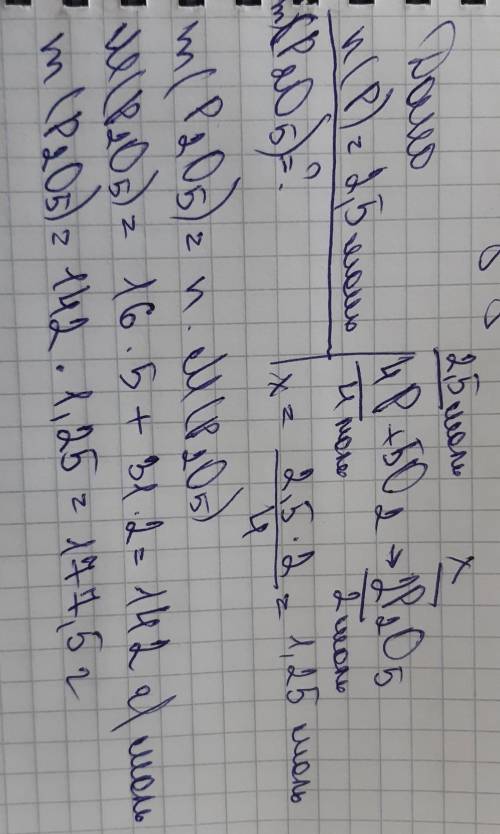 Дано
n(P) = 2,5 моль
m(P2O5) = ?
2,5 моль x
4P + 5O2 → 2P2O5
4 моль 2 моль
x = 2,5 · 2 / 4 = 1,25 моль
m(P2O5) = n · M(P2O5)
M(P2O5) = 16 · 5 + 31 · 2 = 142 г/моль
m(P2O5) = 142 · 1,25 = 177,5 г